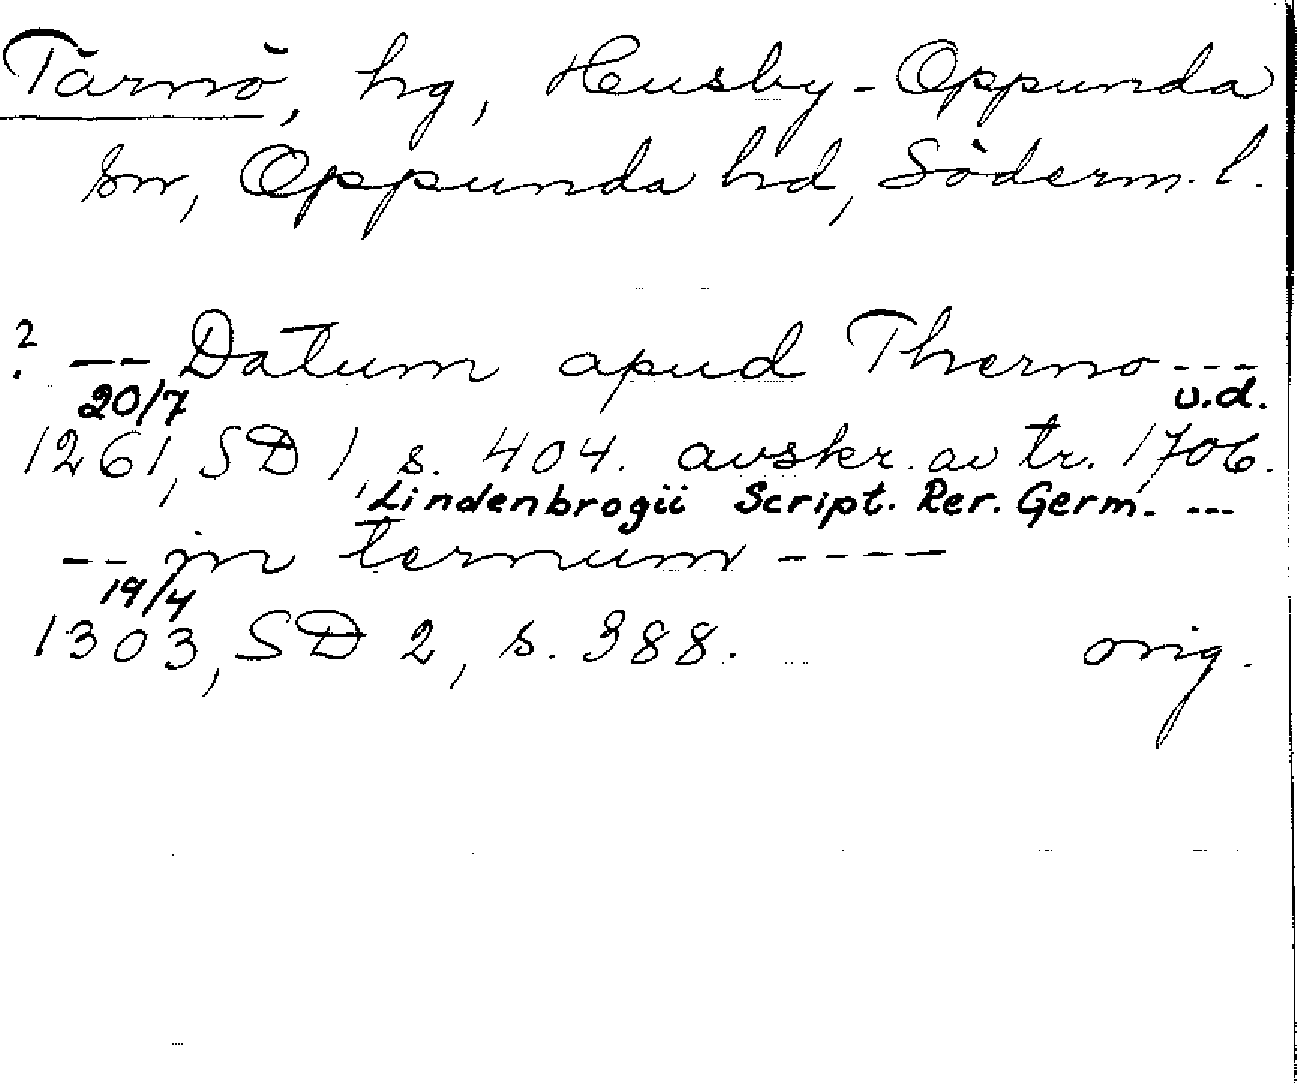 Tärnö, hg, Husby-Oppunda
sn, Oppunda hd, Söderm. l.
? -- Datum apud Therno ---
20/7 u.d.
1261, SD 1, s. 404. avskr. av tr. 1706.
Lindenbrogii Script. Rer. Germ. ---
-- in ternum ----
19/4
1303, SD 2, s. 388. orig.